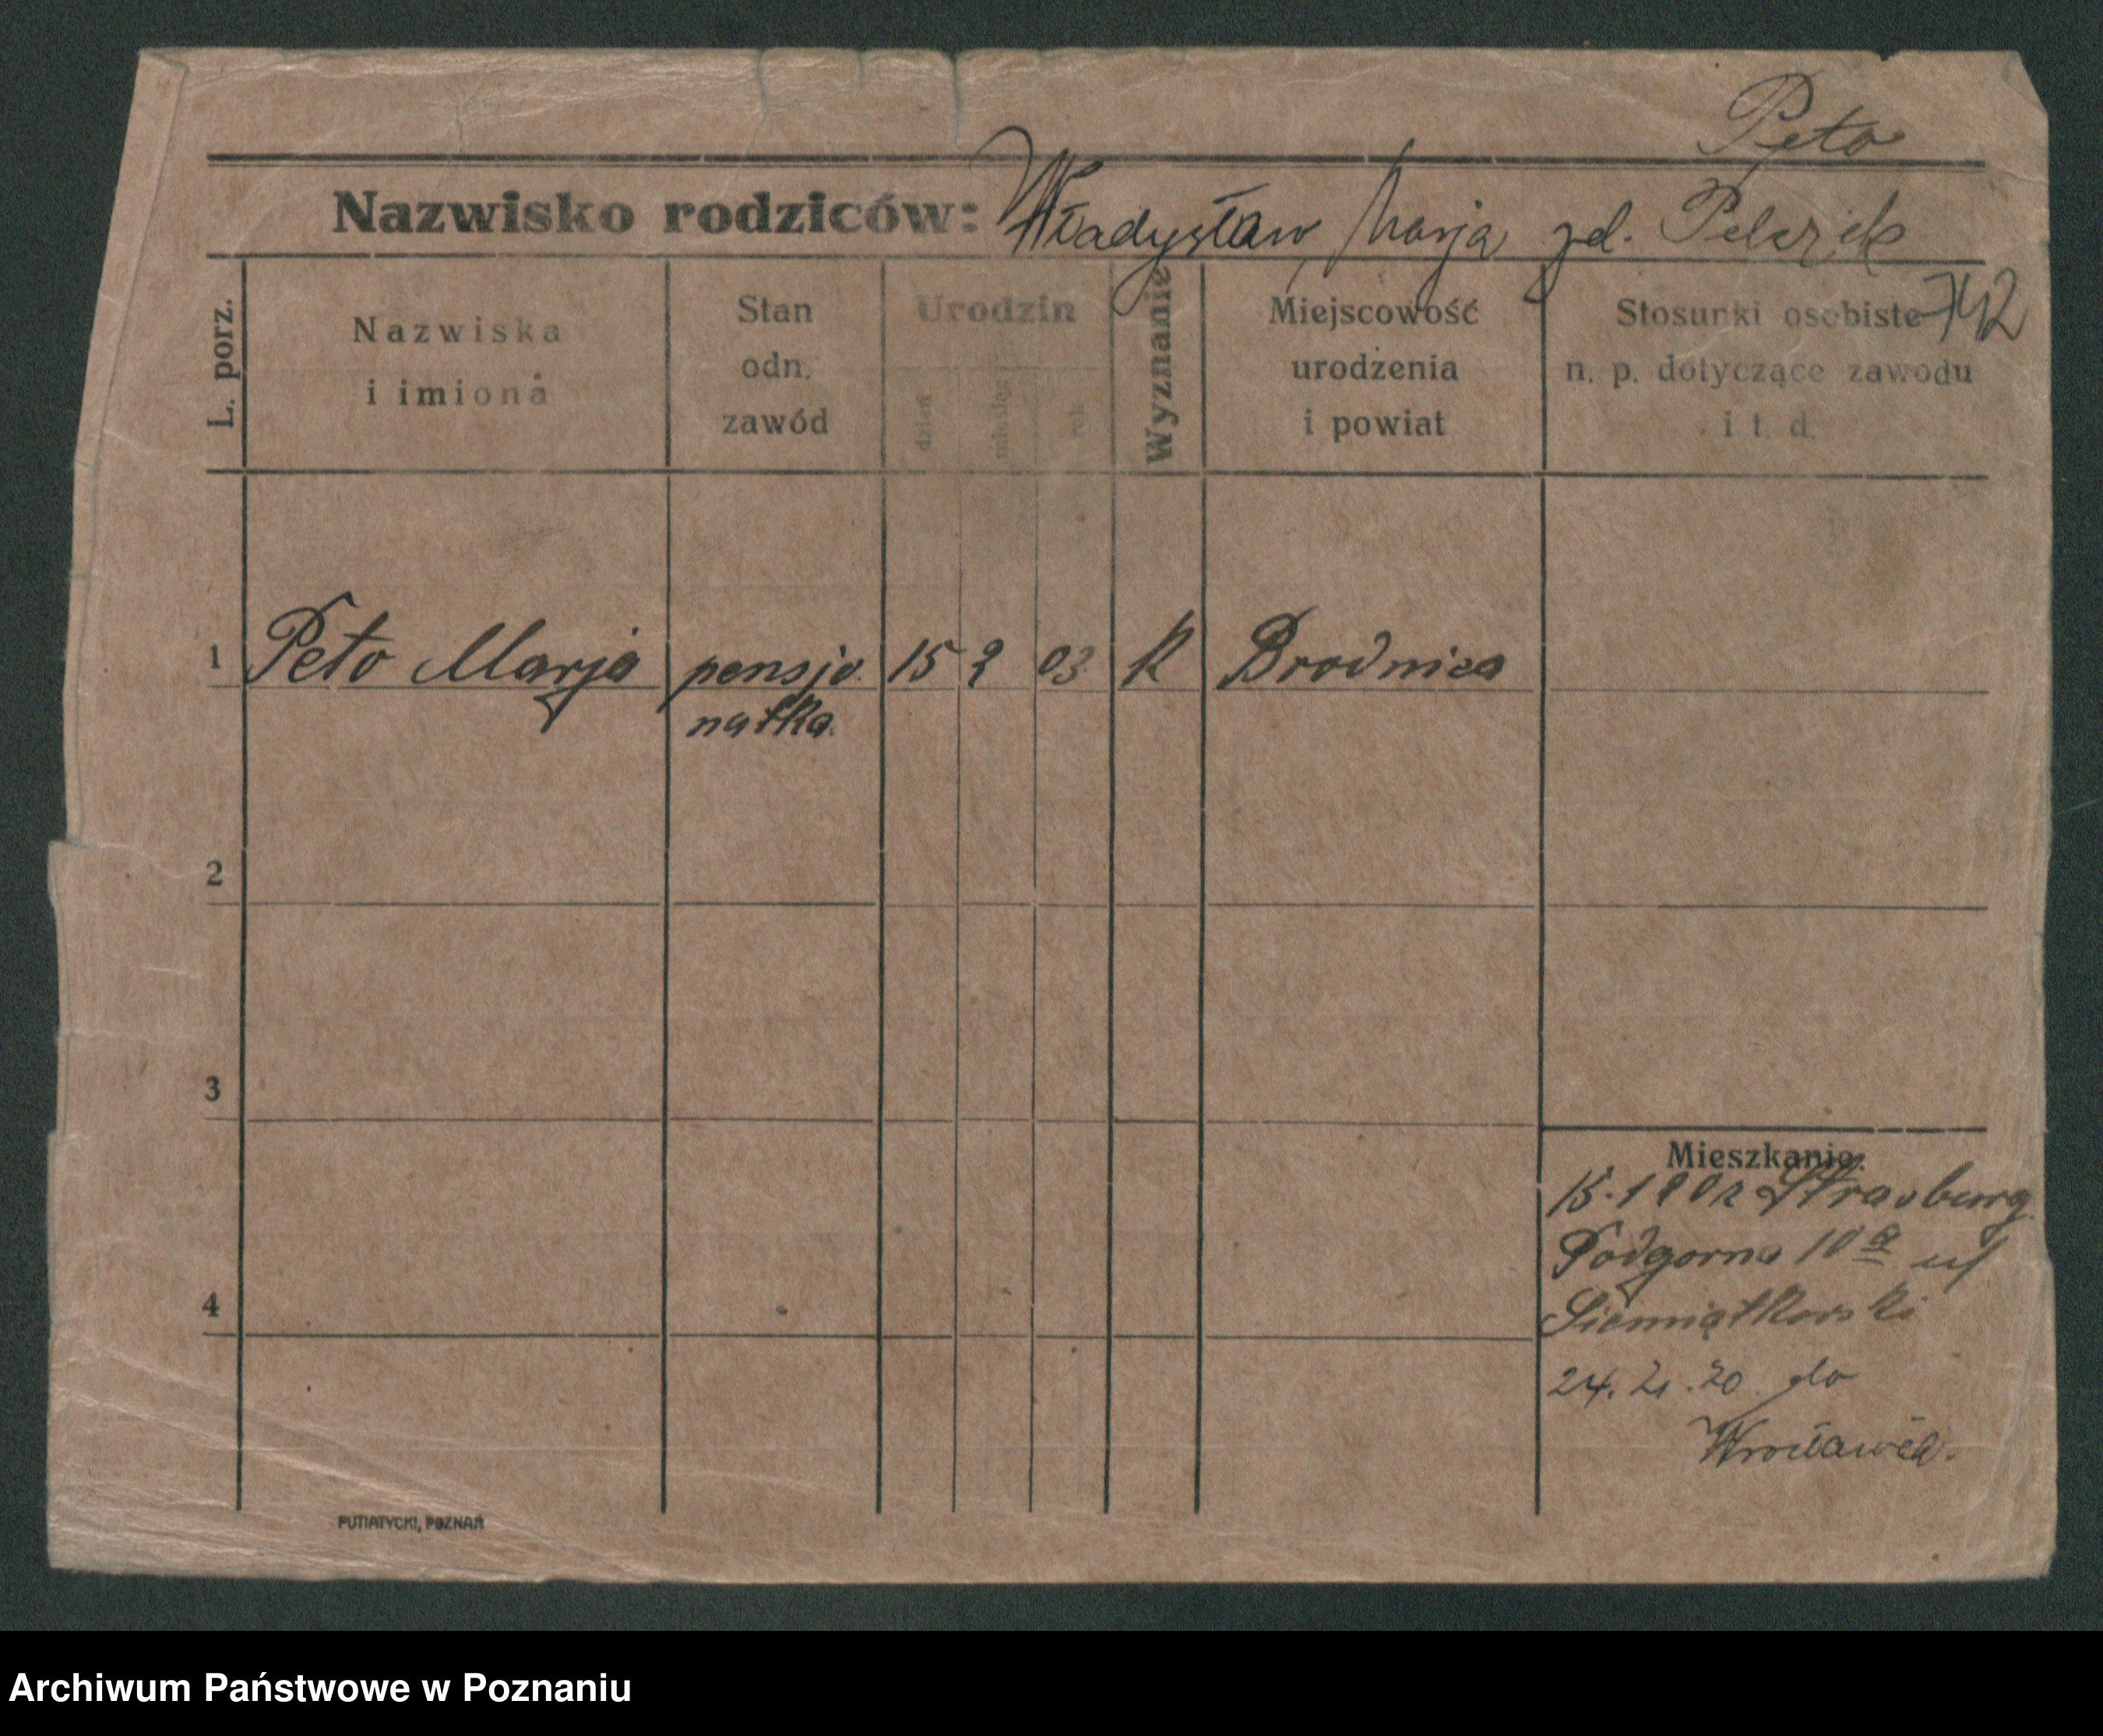 Peto
Nazwisko rodziców: Władysław, Marja zd. Pelczik
742
L. porz.
Nazwiska
i imiona
Stan
odn.
zawód
Urodzin
dzień
miesiąc
rok
Wyznanie
Miejscowość
urodzenia
i powiat
Stosunki osobiste
n. p. dotyczące zawodu
i t. d.
1 Peto Marja pensjo. 15 2 03 K Brodnica
natka.
2
3
4
Mieszkanie:
Strasburg
Podgorna 10 a
Siemiątkowski
24. 20 do
Wrocławia.
PUTIATYCKI, POZNAŃ
Archiwum Państwowe w Poznaniu